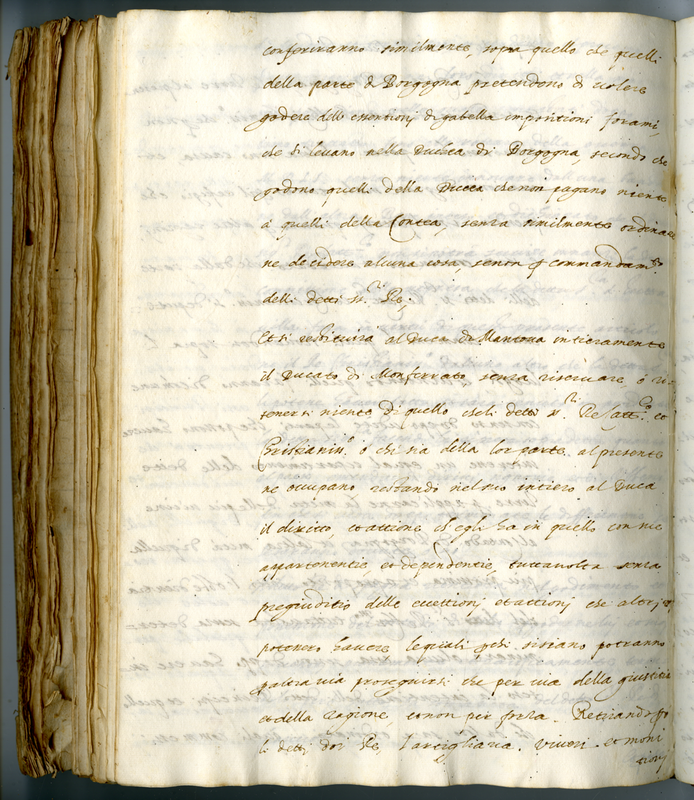 conferiranno similmente, sopra quello che quelli
della parte di Borgogna pretendono di uolere
godere dell' essentioni di gabella impositioni foranij,
che si leuano nella Ducea di Borgogna, secondo che
godono quelli della Ducea che non pagano niente
à quelli della Contea, senza similmente ordinare
ne decidere alcuna cosa, senon p commandam.to
delli detti SS.ri Re;
Et si restituira al Duca di Mantoua intieramente
il Ducato di Monferrato senza riseruare, ò ri-
tenersi niente di quello che li detti SS.ri Re Catt.co et
Cristianiss.o ò chi sia della lor parte al presente
ne occupano restando nel suo intiero al Duca
il diritto, et attione ch' egli ha in quello con sue
appartenentie, et dependentie, tuttauolta senza
pregiuditio delle attioni che altrj
potessero hauere le quali potranno
altra uia proseguirsi che per uia della giustitia
et della ragione, et non per forza. Retirando
li detti doi Re, l'artigliaria. Viueri et moni
tionj